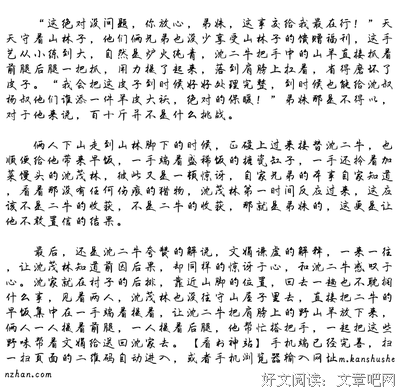 “这绝对没问题，你放心，弟妹，这事交给我最在行！”天
天守着山林子，他们俩兄弟也没少享受山林子的馈赠福利，这手
艺从小练到大，自然是炉火纯青，沈二牛把手中的山羊直接抓着
前腿后腿一把抓，用力提了起来，落到肩膀上扛着，省得磨坏了
皮子。“我会把这皮子到时候好好处理完整，到时候也能给沈叔
杨叔他们谁添一件羊皮大袄，绝对的保暖！”弟妹那是不得以，
对于他来说，百十斤并不是什么挑战。
俩人下山走到山林脚下的时候，正碰上过来接替沈二牛，也
顺便给他带来早饭，一手端着盛稀饭的搪瓷缸子，一手还拎着加
菜馒头的沈茂林，彼此又是一顿惊讶，自家兄弟的本事自家知道
，看着那没有任何伤痕的猎物，沈茂林第一时间反应过来，这应
该不是二牛的收获，不是二牛的收获，那就是弟妹的，这更是让
他不敢置信的结果。
最后，还是沈二牛夸赞的解说，文娟谦虚的解释，一来一往
，让沈茂林知道前因后果，却同样的惊讶于心，和沈二牛感叹于
心。沈家就在村子的后排，靠近山脚的位置，回去一趟也不耽搁
什么事，见着两人，沈茂林也没往守山屋子里去，直接把二牛的
早饭集中在一手端着提着，让沈二牛把肩膀上的野山羊放下来，
俩人一人提着前腿，一人提着后腿，他帮忙搭把手，一起把这些
野味带着文娟给送回沈家去。【看书神站】手机端已经完善，扫
一扫页面的二维码自动进入，或者手机浏览器输入网址m.kanshushe
nzhan.com
好文阅读：文章吧网